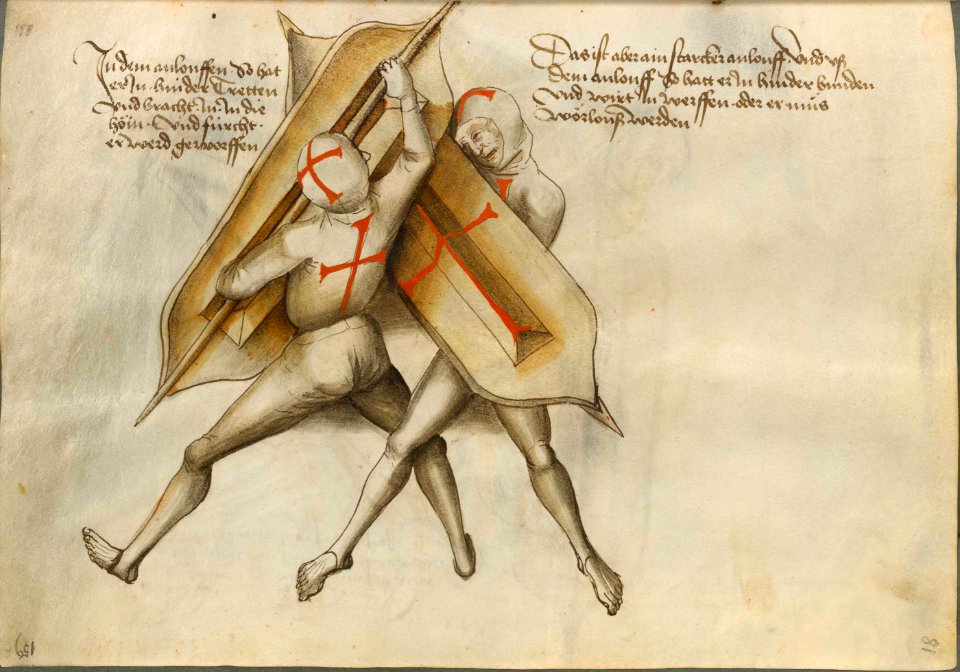 In dem anlouffen So hat
er In hinder Tretten
Und bracht In In die
höin Und fürcht
er werd geworffen
Das ist aber ain starcker anlouff Und uß
dem anlouff So hatt er In hinder bunden
Und wirt In werffen oder er müs
werden
158
159